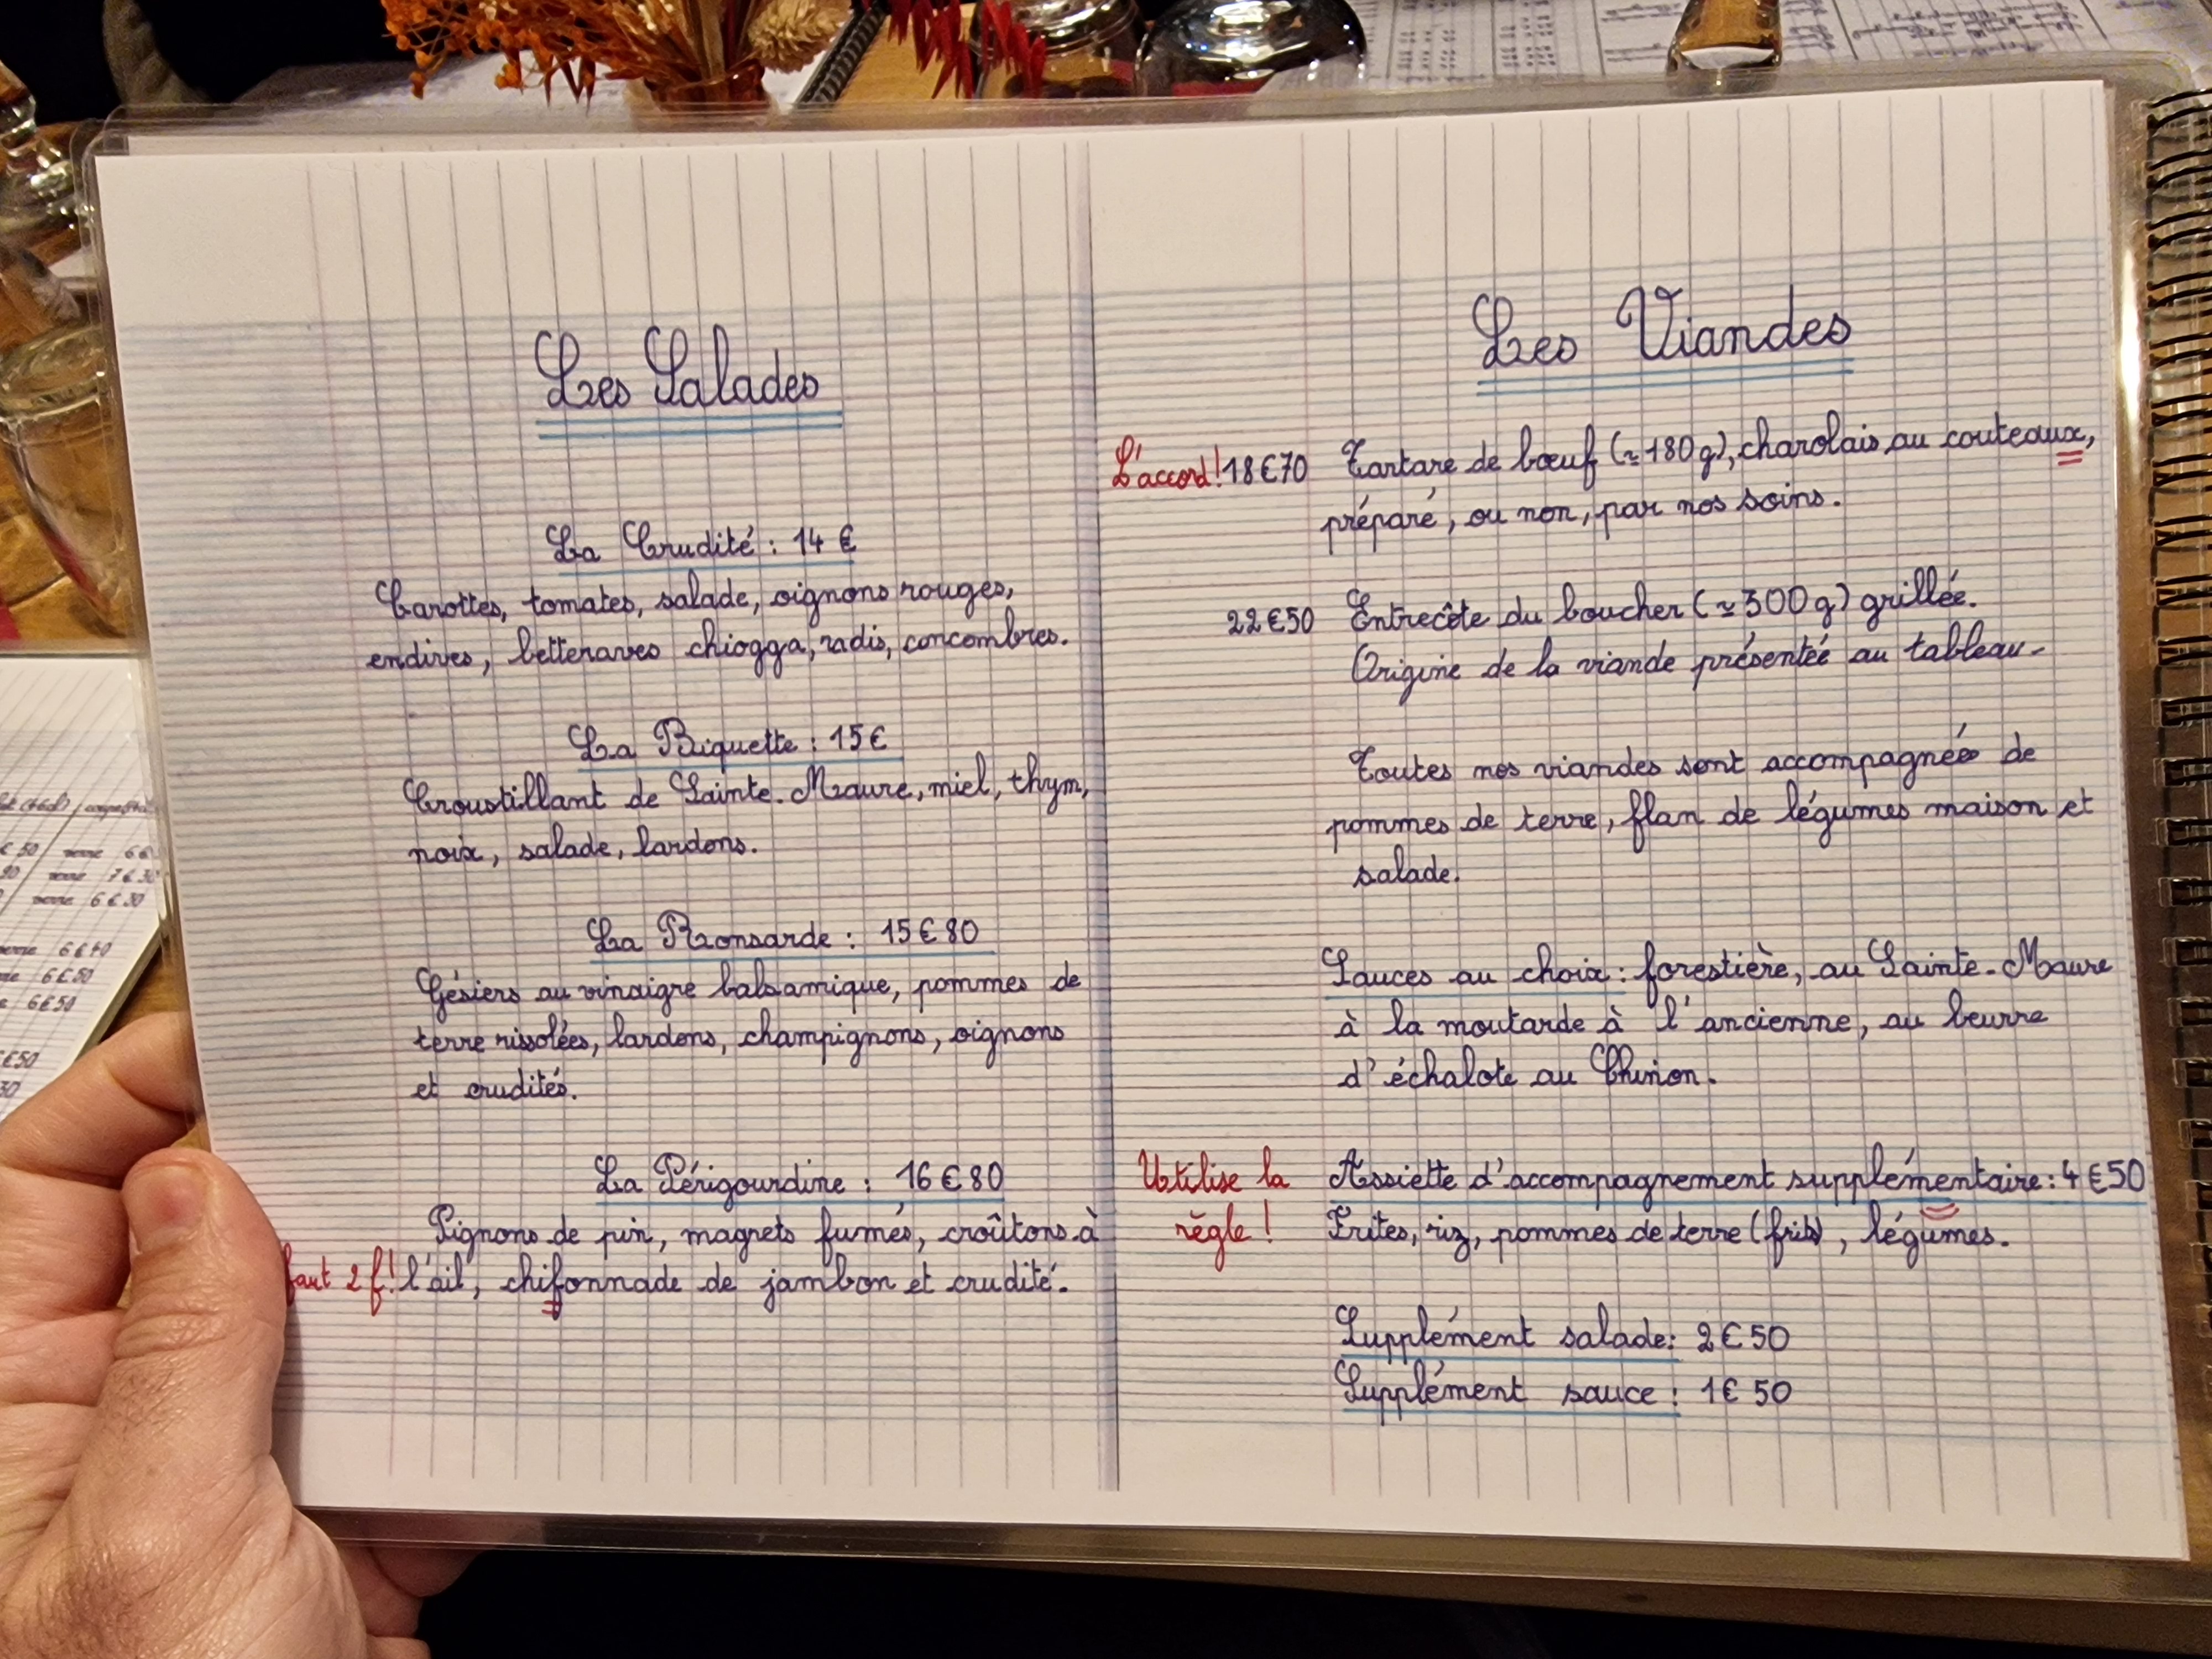 Les Salades
La Crudité : 14 €
Carottes, tomates, salade, oignons rouges,
endives, betteraves chiogga, radis, concombres.
La Biquette : 15 €
Croustillant de Sainte-Maure, miel, thym,
noix, salade, lardons.
La Ronsarde : 15 € 80
Gésiers au vinaigre balsamique, pommes de
terre rissolées, lardons, champignons, oignons
et crudités.
La Périgourdine : 16 € 80
Pignons de pin, magrets fumés, croûtons à
faut 2 f! l'ail, chifonnade de jambon et crudité.
Les Viandes
L'accord! 18€70 Tartare de bœuf (≃ 180 g), charolais au couteaux,
préparé, ou non, par nos soins.
22€50 Entrecôte du boucher (≃ 300 g) grillée.
Origine de la viande présentée au tableau.
Toutes nos viandes sont accompagnées de
pommes de terre, flan de légumes maison et
salade.
Sauces au choix : forestière, au Sainte-Maure
à la moutarde à l'ancienne, au beurre
d'échalote au Chinon.
Utilise la Assiette d'accompagnement supplémentaire : 4 €50
règle ! Frites, riz, pommes de terre (frits), légumes.
Supplément salade : 2€50
Supplément sauce : 1€ 50
verre 6 €
verre 7 € 30
verre 6 € 30
6 € 50
6 € 50